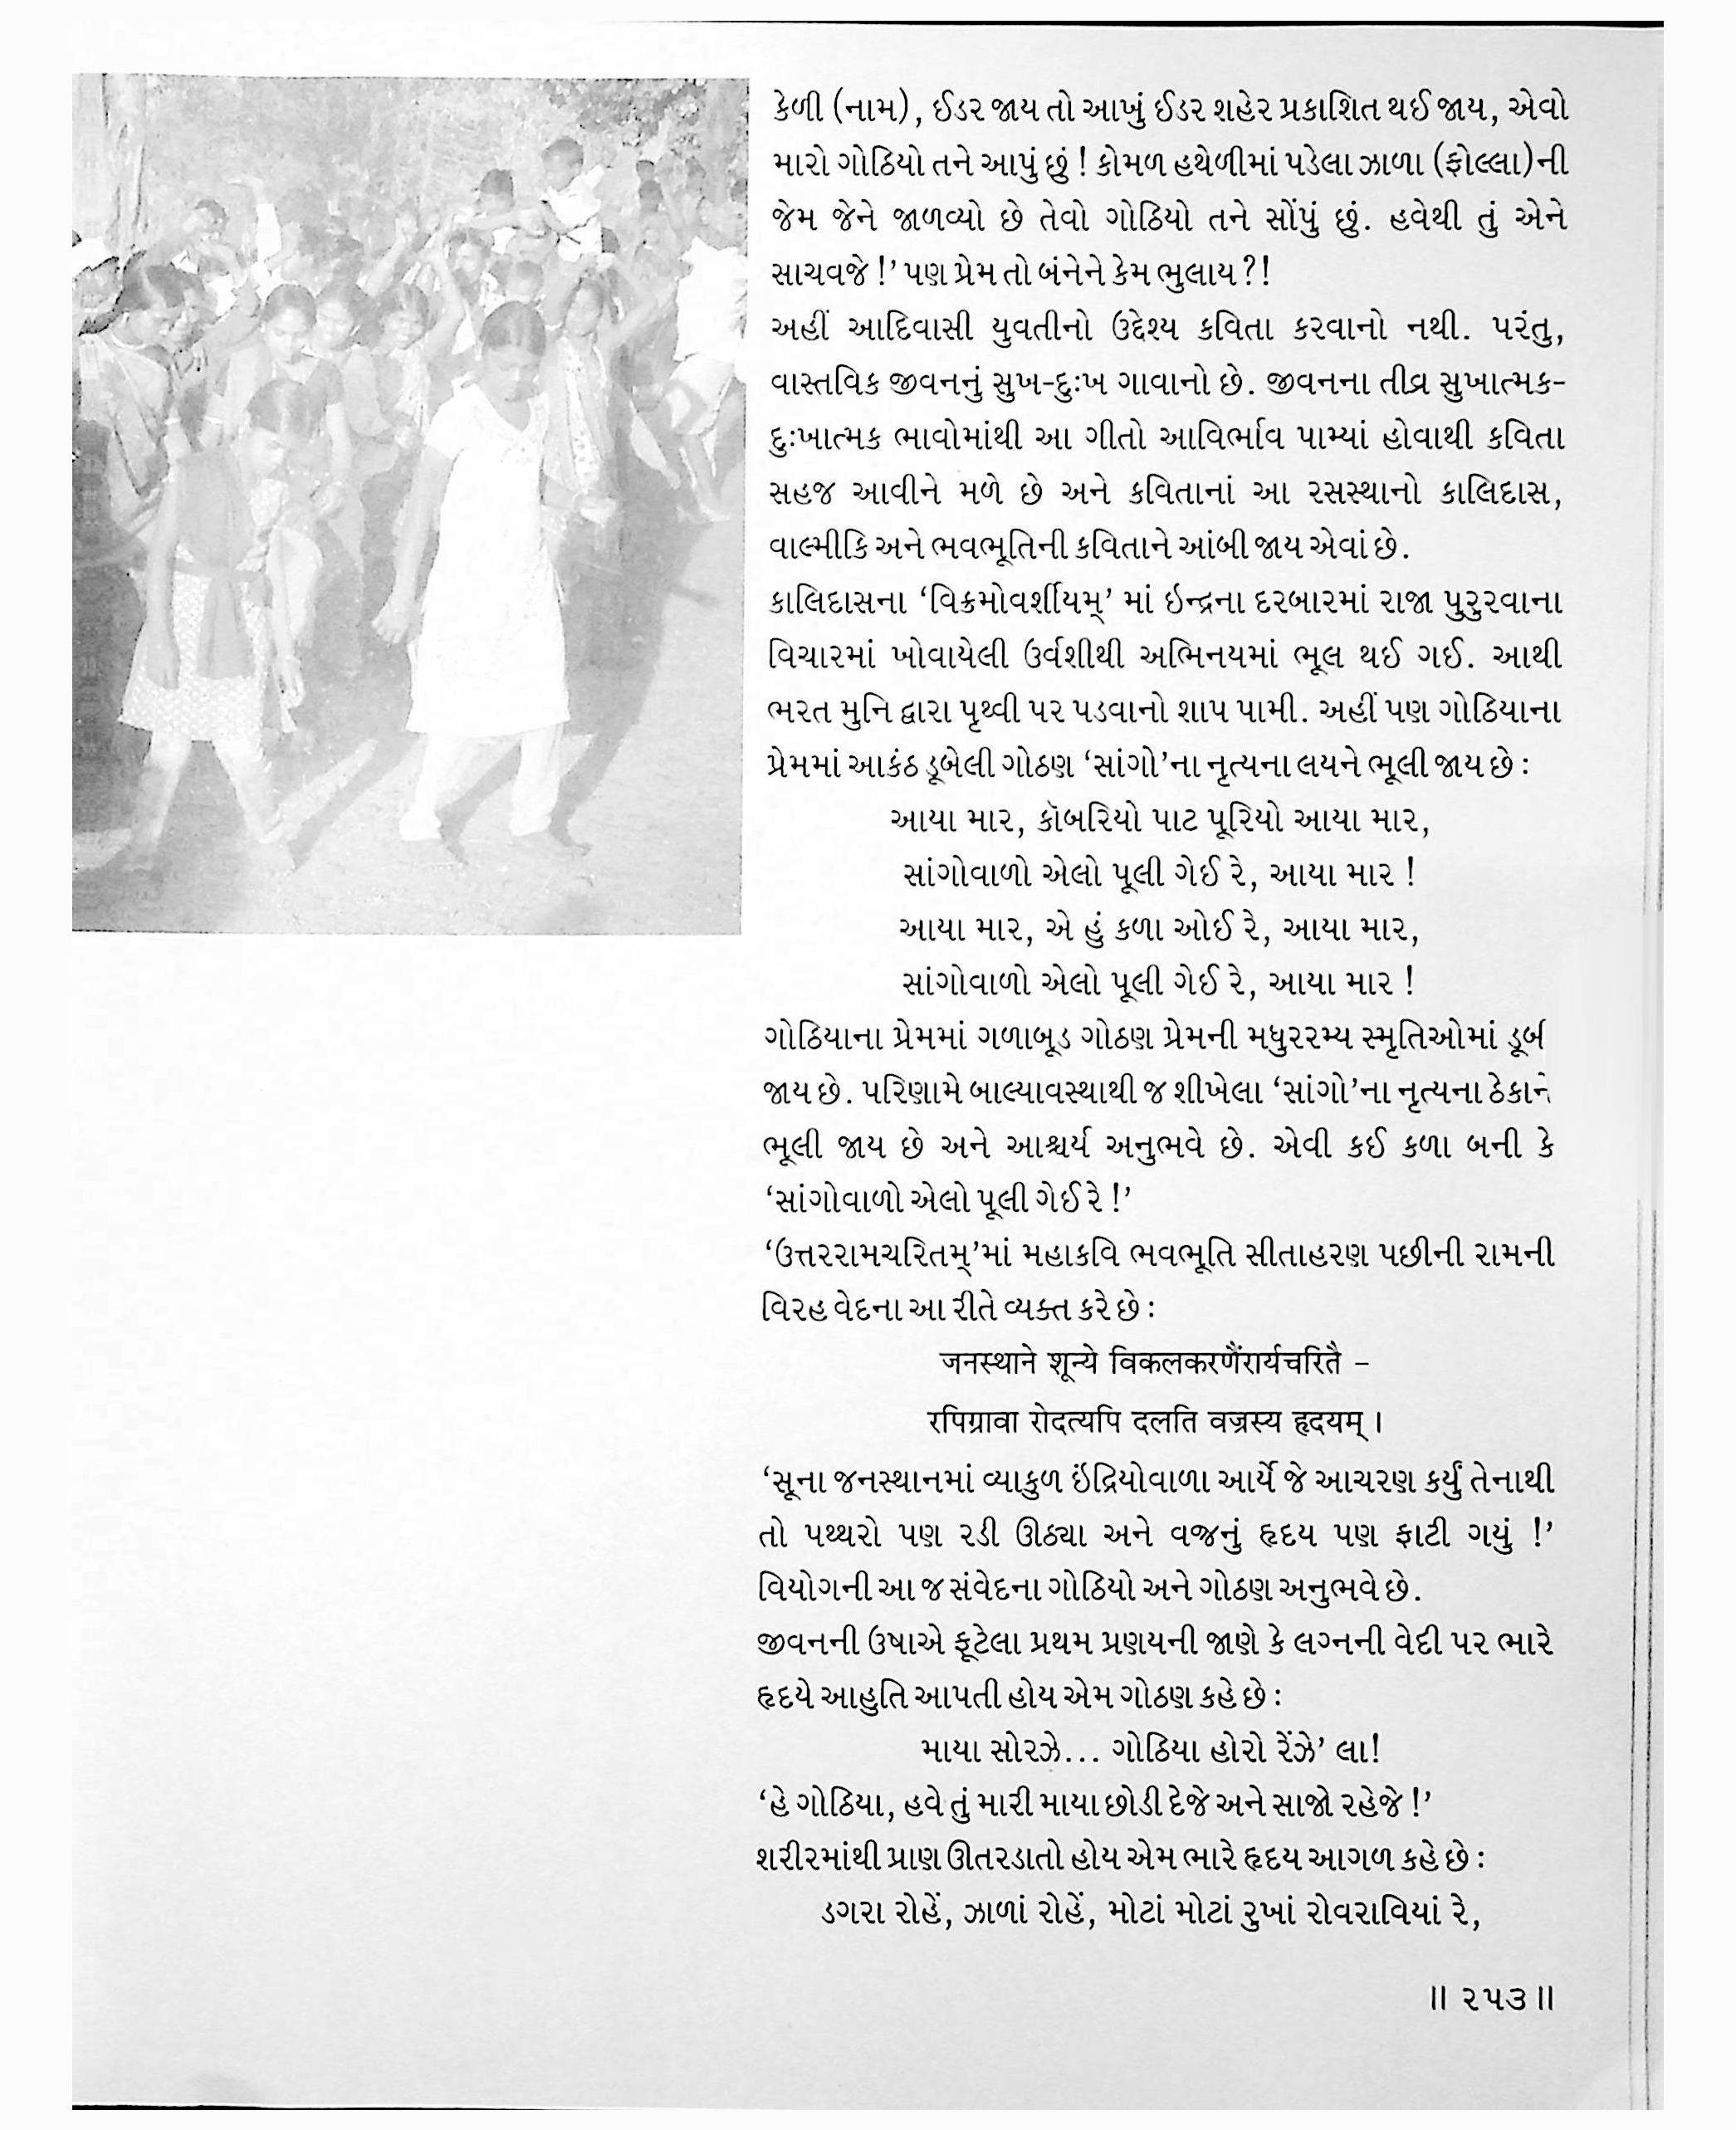 કેળી (નામ), ઈડર જાય તો આખું ઈડર શહેર પ્રકાશિત થઈ જાય, એવો
મારો ગોઠિયો તને આપું છું ! કોમળ હથેળીમાં પડેલા ઝાળા (ફોલ્લા)ની
જેમ જેને જાળવ્યો છે તેવો ગોઠિયો તને સોંપું છું. હવેથી તું એને
સાચવજે !’ પણ પ્રેમ તો બંનેને કેમ ભુલાય ?!
અહીં આદિવાસી યુવતીનો ઉદ્દેશ્ય કવિતા કરવાનો નથી. પરંતુ,
વાસ્તવિક જીવનનું સુખ-દુઃખ ગાવાનો છે. જીવનના તીવ્ર સુખાત્મક-
દુઃખાત્મક ભાવોમાંથી આ ગીતો આવિર્ભાવ પામ્યાં હોવાથી કવિતા
સહજ આવીને મળે છે અને કવિતાનાં આ રસસ્થાનો કાલિદાસ,
વાલ્મીકિ અને ભવભૂતિની કવિતાને આંબી જાય એવાં છે.
કાલિદાસના ‘વિક્રમોવર્શીયમ્’ માં ઇન્દ્રના દરબારમાં રાજા પુરુરવાના
વિચારમાં ખોવાયેલી ઉર્વશીથી અભિનયમાં ભૂલ થઈ ગઈ. આથી
ભરત મુનિ દ્વારા પૃથ્વી પર પડવાનો શાપ પામી. અહીં પણ ગોઠિયાના
પ્રેમમાં આકંઠ ડૂબેલી ગોઠણ ‘સાંગો’ના નૃત્યના લયને ભૂલી જાય છે :
આયા માર, કૉબરિયો પાટ પૂરિયો આયા માર,
સાંગોવાળો એલો પૂલી ગેઈ રે, આયા માર !
આયા માર, એ હું કળા ઓઈ રે, આયા માર,
સાંગોવાળો એલો પૂલી ગેઈ રે, આયા માર !
ગોઠિયાના પ્રેમમાં ગળાબૂડ ગોઠણ પ્રેમની મધુરરમ્ય સ્મૃતિઓમાં
જાય છે. પરિણામે બાલ્યાવસ્થાથી જ શીખેલા ‘સાંગો’ના નૃત્યના ઠેકાને
ભૂલી જાય છે અને આશ્ચર્ય અનુભવે છે. એવી કઈ કળા બની કે
‘સાંગોવાળો એલો પૂલી ગેઈ રે !’
‘ઉત્તરરામચરિતમ્’માં મહાકવિ ભવભૂતિ સીતાહરણ પછીની રામની
વિરહ વેદના આ રીતે વ્યક્ત કરે છે :
जनस्थाने शून्ये विकलकरणैंरार्यचरितै –
रपिग्रावा रोदत्यपि दलति वज्रस्य हृदयम् ।
‘સૂના જનસ્થાનમાં વ્યાકુળ ઇંદ્રિયોવાળા આર્યે જે આચરણ કર્યું તેનાથી
તો પથ્થરો પણ રડી ઊઠ્યા અને વજ્રનું હૃદય પણ ફાટી ગયું !’
વિયોગની આ જ સંવેદના ગોઠિયો અને ગોઠણ અનુભવે છે.
જીવનની ઉષાએ ફૂટેલા પ્રથમ પ્રણયની જાણે કે લગ્નની વેદી પર ભારે
હૃદયે આહુતિ આપતી હોય એમ ગોઠણ કહે છે :
માયા સોરઝે... ગોઠિયા હોરો રેંઝે’ લા!
‘હે ગોઠિયા, હવે તું મારી માયા છોડી દેજે અને સાજો રહેજે !’
શરીરમાંથી પ્રાણ ઊતરડાતો હોય એમ ભારે હૃદય આગળ કહે છે :
ડગરા રોહેં, ઝાળાં રોહેં, મોટાં મોટાં રુખાં રોવરાવિયાં રે,
॥ ૨૫૩ ॥